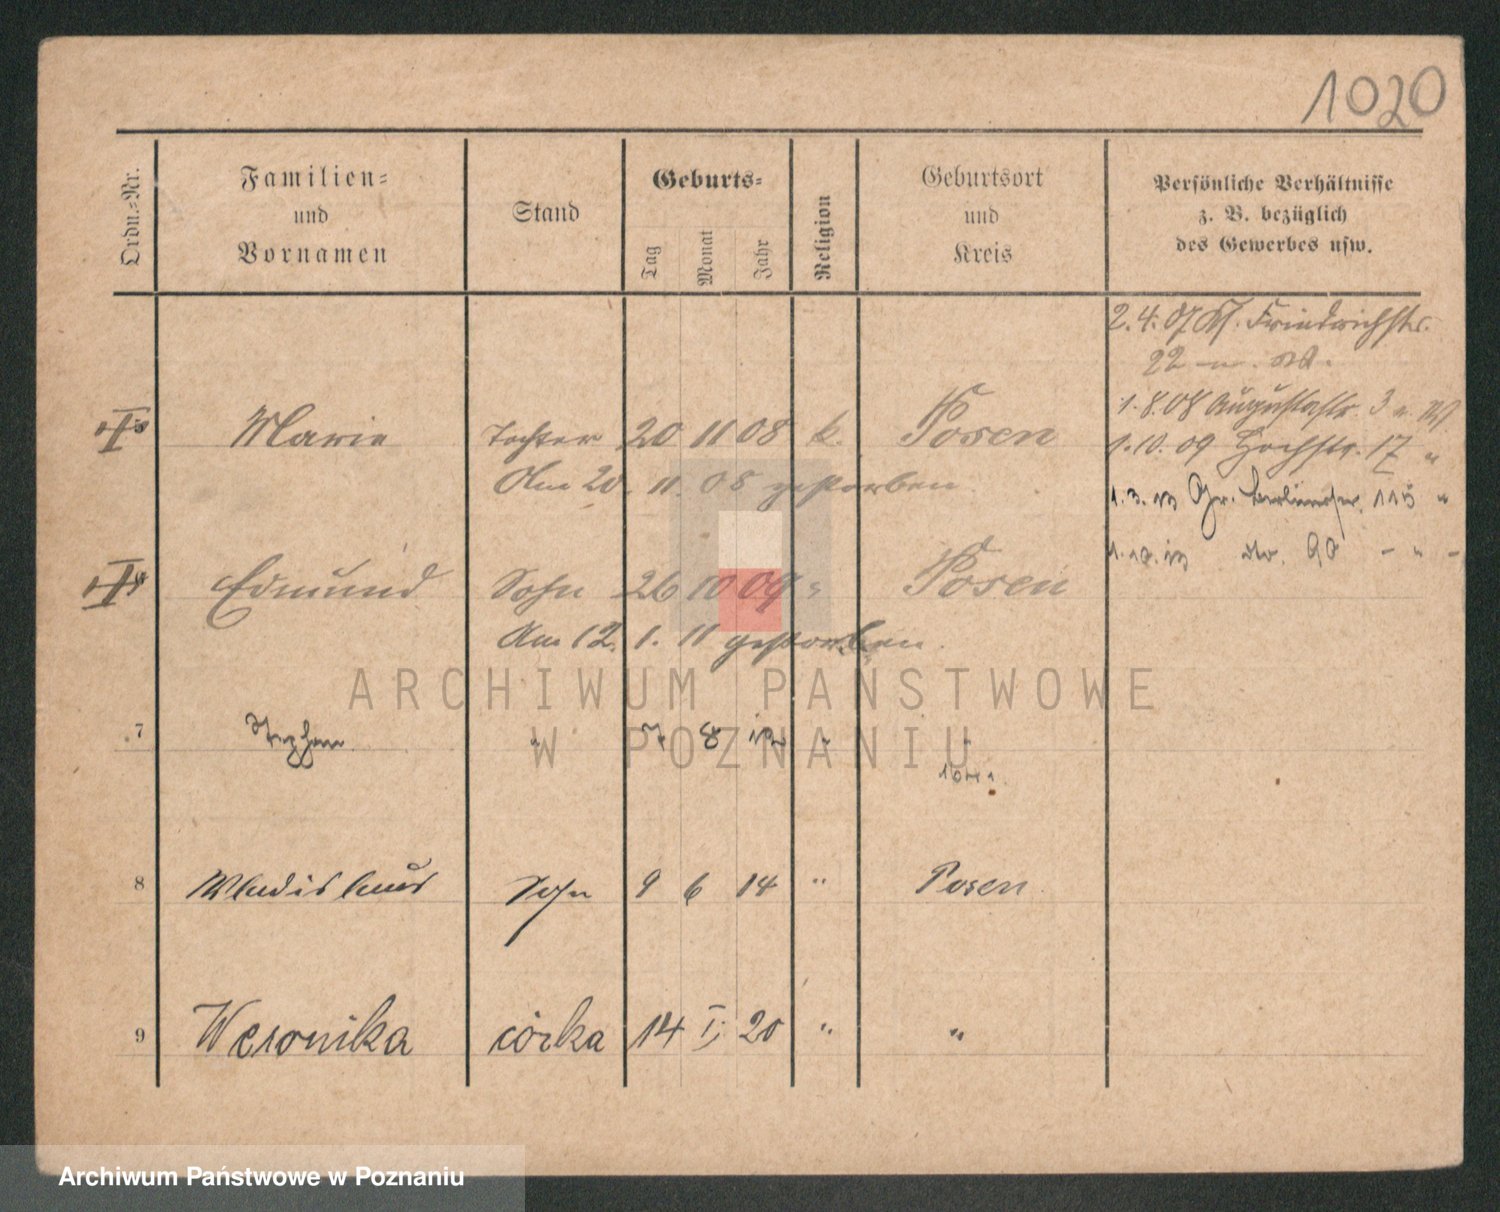 1020
Ordn.-Nr.
Familien-
und
Vornamen
Stand
Geburts-
Tag
Monat
Jahr
Religion
Geburtsort
und
Kreis
Persönliche Verhältnisse
z. B. bezüglich
des Gewerbes usw.
2.4.07 Friedrichstr.
22
1.8.08 Augustastr. 3
1.10.09 Hochstr. 17 "
1.3.13 Gr. Berlinerstr. 115 "
1.10.13 do. 90 - " -
5 Marie Tochter 20 11 08 k. Posen
Am 20. 11. 08 gestorben
Edmund Sohn 26 10 09 " Posen
Am 12. 1. 11 gestorben.
7 Stephan " 7 8 12 " "
8 Wladislaus Sohn 9 6 14 " Posen
9 Weronika córka 14 I. 20 " "
ARCHIWUM PAŃSTWOWE
W POZNANIU
Archiwum Państwowe w Poznaniu